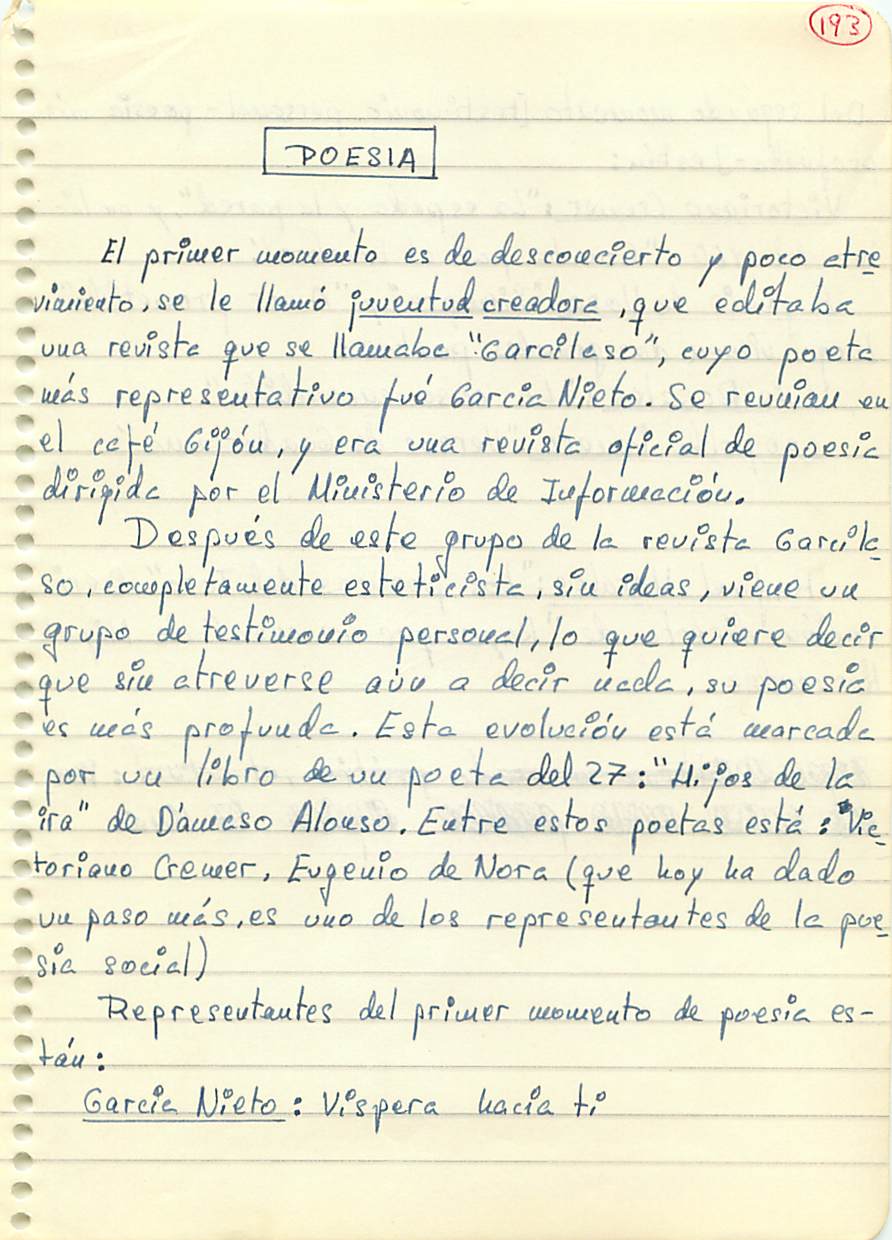 193
POESIA
El primer momento es de desconcierto y poco atre
vimiento, se le llamó juventud creadora, que editaba
una revista que se llamaba "Garcilaso", cuyo poeta
más representativo fué Garcia Nieto. Se reunian en
el café Gijón, y era una revista oficial de poesia
dirigida por el Ministerio de Información.
Después de este grupo de la revista Garcila
so, completamente esteticista, sin ideas, viene un
grupo de testimonio personal, lo que quiere decir
que sin atreverse aún a decir nada, su poesia
es más profunda. Esta evolución está marcada
por un libro de un poeta del 27: "Hijos de la
ira" de Dámaso Alonso. Entre estos poetas está: Vic
toriano Cremer, Eugenio de Nora (que hoy ha dado
un paso más, es uno de los representantes de la poe
sia social)
Representantes del primer momento de poesia es-
tán:
Garcia Nieto: Vispera hacia ti